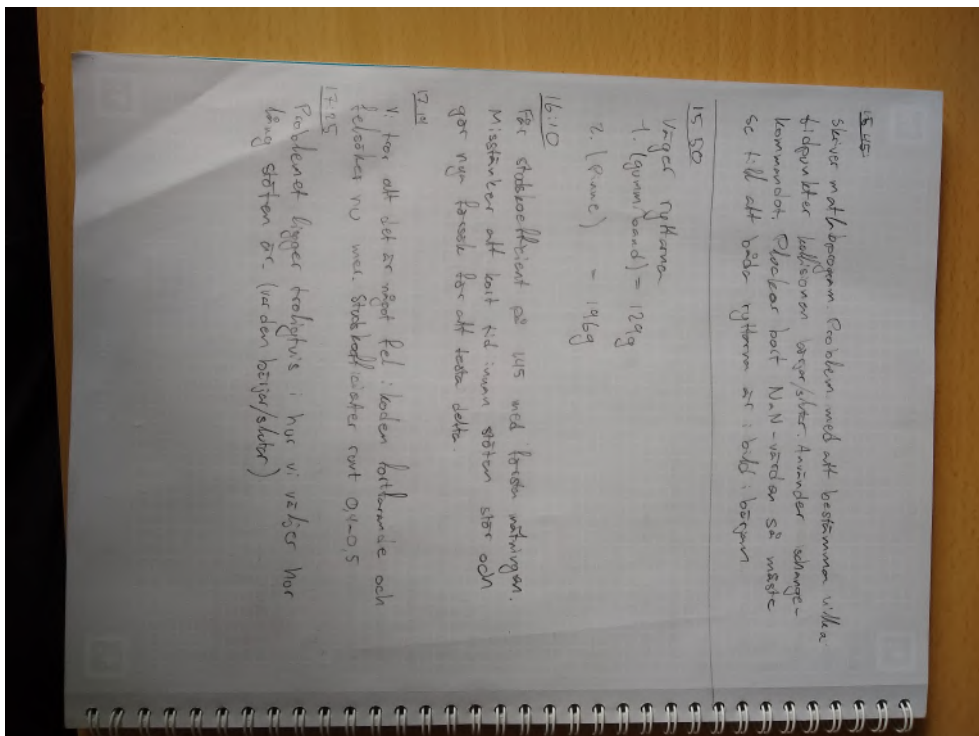 15.45
Skriver matlabprogram. Problem med att bestämma vilka
tidpunkter kollisionen börjar/slutar. Använder ischange-
kommandot. Plockar bort NaN-värden så måste
se till att båda ryttarna är i bild i början
15.50
Väger ryttarna
1. (gummiband) = 129g
2. (Pinne) = 196g
16:10
Får stötskoefficient på 145 med första mätningen.
Misstänker att kort tid innan stöten stör och
gör nya försök för att testa detta.
17.14
Vi tror att det är något fel i koden fortfarande och
felsöker nu mer. Stötskoefficienter runt 0,4-0,5
17:25
Problemet ligger troligtvis i hur vi väljer hur
lång stöten är. (var den börjar/slutar)